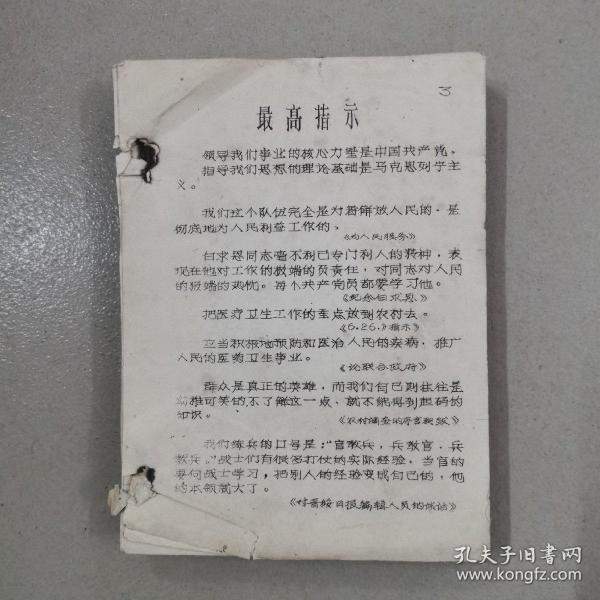 3
最高指示
领导我们事业的核心力量是中国共产党。
指导我们思想的理论基础是马克思列宁主
义。
我们这个队伍完全是为着解放人民的,是
彻底地为人民利益工作的。
《为人民服务》
白求恩同志毫不利己专门利人的精神,表
现在他对工作的极端的负责任,对同志对人民
的极端的热忱。每个共产党员都要学习他。
《纪念白求恩》
把医疗卫生工作的重点放到农村去。
《6.26.》指示》
应当积极地预防和医治人民的疾病,推广
人民的医药卫生事业。
《论联合政府》
群众是真正的英雄,而我们自己则往往是
幼稚可笑的,不了解这一点、就不能得到起码的
知识。
《农村调查的序言和跋》
我们练兵的口号是:“官教兵,兵教官,兵
教兵。”战士们有很多打仗的实际经验。当官的
要向战士学习,把别人的经验变成自己的,他
的本领就大了。
《对晋绥日报编辑人员的谈话》
孔夫子旧书网
www.kongfz.com